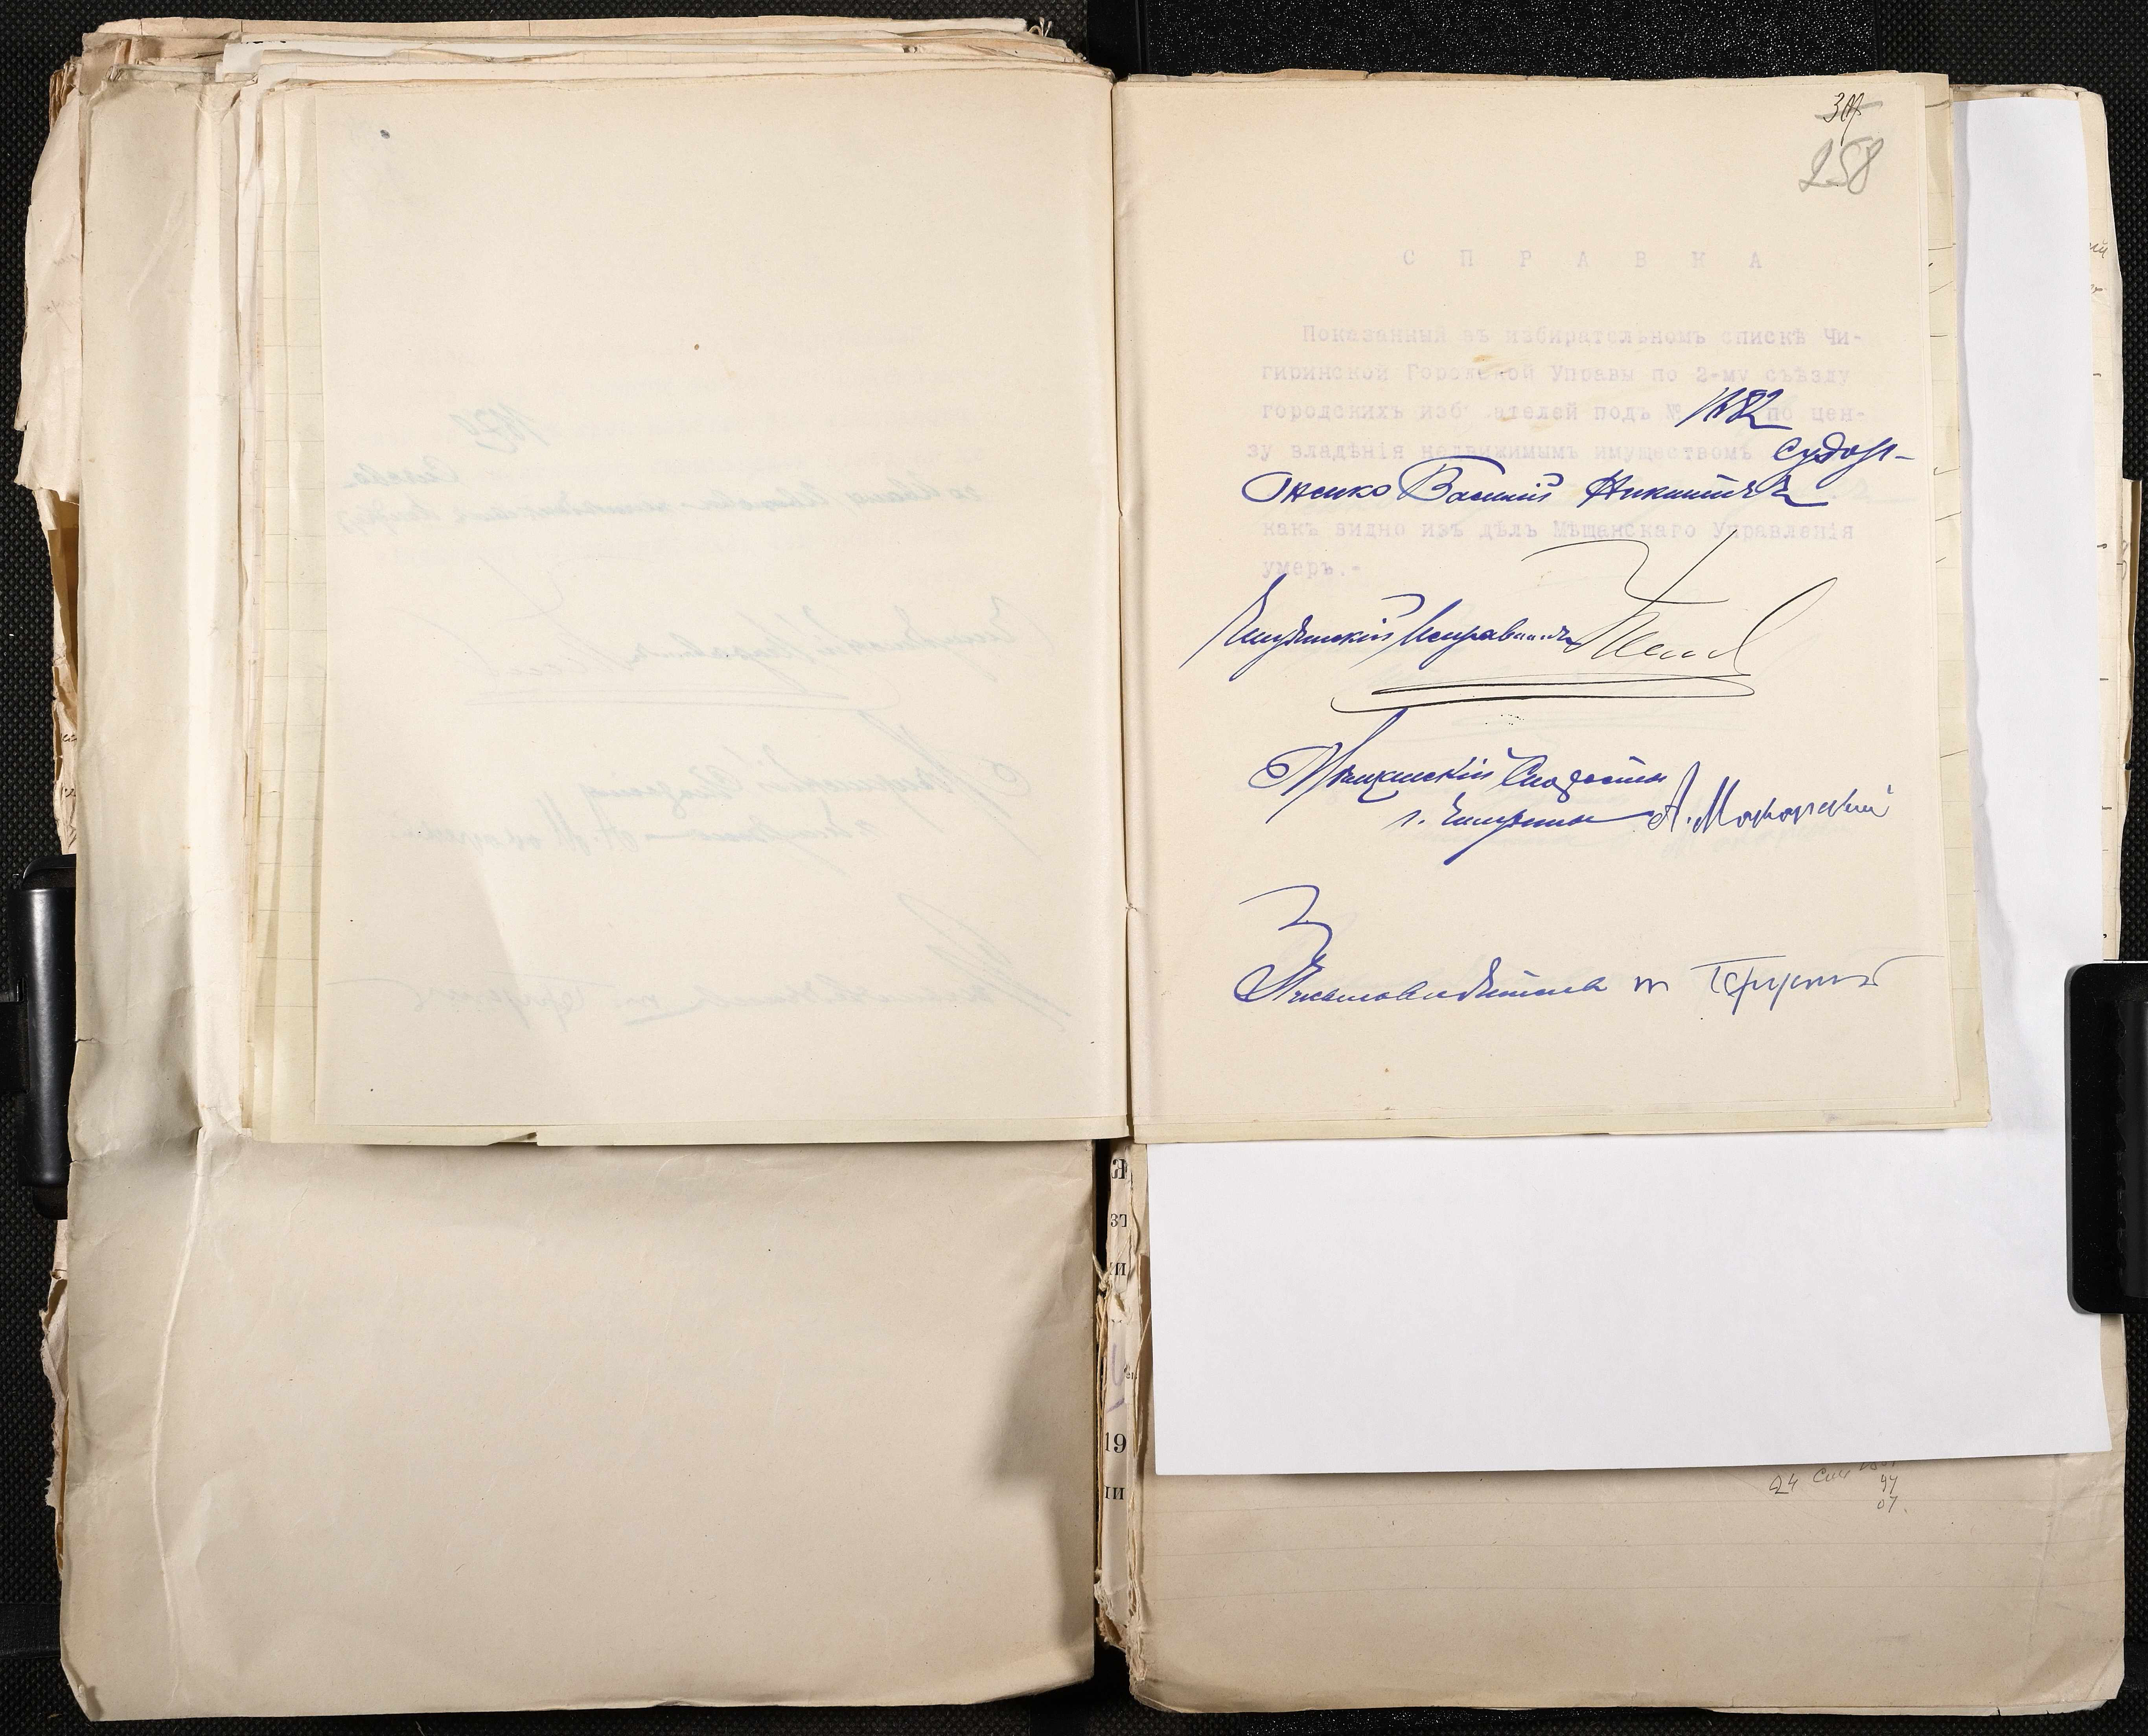 258
С П Р А В К А
Показанный въ избирательномъ спискѣ Чи-
гиринской Городской Управы по 2-му съѣзду
городскихъ избирателей подъ № 1682 по цен-
зу владѣнія недвижимымъ имуществомъ Судор-
Василій Никитичъ
какъ видно изъ дѣлъ Мѣщанскаго Управленія
умеръ.-
Чигиринскій Исправникъ
Мѣщанскій Староста
г. Чигирина А. Макарскій
Письмоводитель
24
94
07.